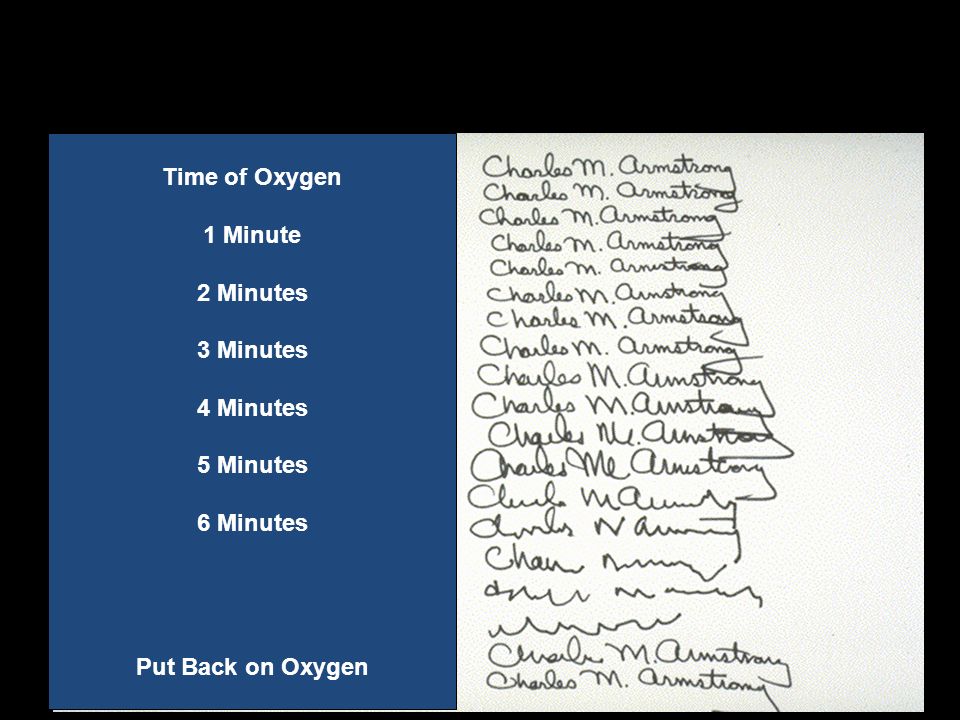 Time of Oxygen
1 Minute
2 Minutes
3 Minutes
4 Minutes
5 Minutes
6 Minutes
Put Back on Oxygen
Charles M. Armstrong
Charles M. Armstrong
Charles M. Armstrong
Charles M. Armstrong
Charles M. Armstrong
Charles M. Armstrong
Charles M. Armstrong
Charles M. Armstrong
Charles M. Armstrong
Charles M. Armstrong
Charles M. Armstrong
Charles M. Armstrong
Charles M. Armstrong
Charles M. Armstrong